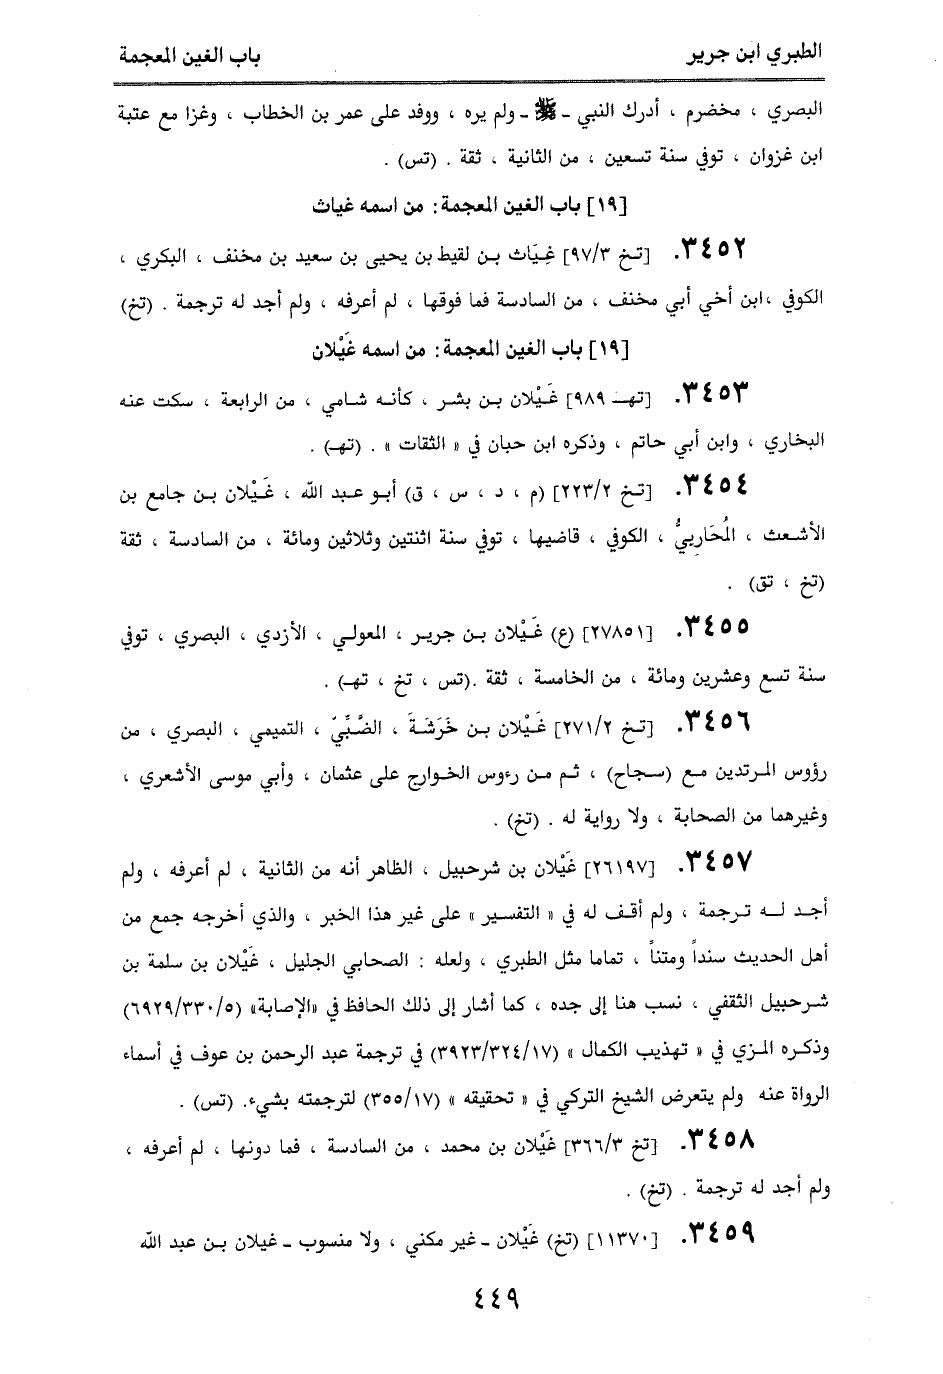 الطبري ابن جرير
باب الغين المعجمة
البصري ، مخضرم ، أدرك النبي ـ ﷺ ـ ولم يره ، ووفد على عمر بن الخطاب ، وغزا مع عتبة
ابن غزوان ، توفي سنة تسعين ، من الثانية ، ثقة . (تس) .
[١٩] باب الغين المعجمة: من اسمه غياث
٣٤٥٢. [تخ ٩٧/٣] غِيَاث بن لقيط بن يحيى بن سعيد بن مخنف ، البكري ،
الكوفي ،ابن أخي أبي مخنف ، من السادسة فما فوقها ، لم أعرفه ، ولم أجد له ترجمة . (تخ)
[١٩] باب الغين المعجمة: من اسمه غَيْلان
٣٤٥٣. [تهـ ٩٨٩] غَيْلان بن بشر ، كأنه شامي ، من الرابعة ، سكت عنه
البخاري ، وابن أبي حاتم ، وذكره ابن حبان في « الثقات » . (تهـ) .
٣٤٥٤. [تخ ٢٢٣/٢] (م ، د ، س ، ق) أبو عبد الله ، غَيْلان بن جامع بن
الأشعث ، المُحَاربيُّ ، الكوفي ، قاضيها ، توفي سنة اثنتين وثلاثين ومائة ، من السادسة ، ثقة
(تخ ، تق) .
٣٤٥٥. [٢٧٨٥١] (ع) غَيْلان بن جرير ، المعولي ، الأزدي ، البصري ، توفي
سنة تسع وعشرين ومائة ، من الخامسة ، ثقة .(تس ، تخ ، تهـ) .
٣٤٥٦. [تخ ٢٧١/٢] غَيْلان بن خَرَشَةَ ، الضَّبِّيّ ، التميمي ، البصري ، من
رؤوس المرتدين مع (سجاح) ، ثم من رءوس الخوارج على عثمان ، وأبي موسى الأشعري ،
وغيرهما من الصحابة ، ولا رواية له . (تخ) .
٣٤٥٧. [٢٦١٩٧] غَيْلان بن شرحبيل ، الظاهر أنه من الثانية ، لم أعرفه ، ولم
أجد له ترجمة ، ولم أقف له في « التفسير » على غير هذا الخبر ، والذي أخرجه جمع من
أهل الحديث سنداً ومتناً ، تماما مثل الطبري ، ولعله : الصحابي الجليل ، غَيْلان بن سلمة بن
شرحبيل الثقفي ، نسب هنا إلى جده ، كما أشار إلى ذلك الحافظ في «الإصابة» (٦٩٢٩/٣٣٠/٥)
وذكره المزي في « تهذيب الكمال » (٣٩٢٣/٣٢٤/١٧) في ترجمة عبد الرحمن بن عوف في أسماء
الرواة عنه ولم يتعرض الشيخ التركي في « تحقيقه » (٣٥٥/١٧) لترجمته بشيء. (تس) .
٣٤٥٨. [تخ ٣٦٦/٣] غَيْلان بن محمد ، من السادسة ، فما دونها ، لم أعرفه ،
ولم أجد له ترجمة . (تخ) .
٣٤٥٩. [١١٣٧٠] (تخ) غَيْلان ـ غير مكني ، ولا منسوب ـ غيلان بن عبد الله
٤٤٩